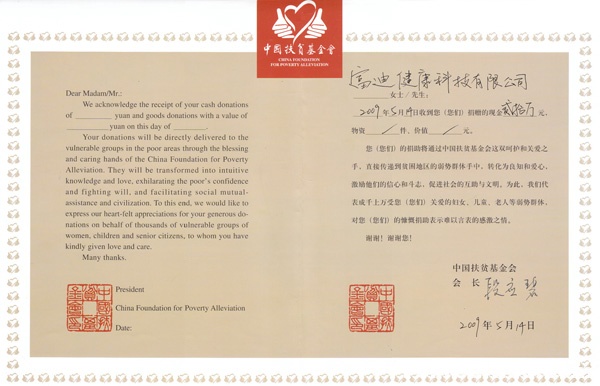 中国扶贫基金會
CHINA FOUNDATION
FOR POVERTY ALLEVIATION
Dear Madam/Mr.:
We acknowledge the receipt of your cash donations
of yuan and goods donations with a value of
yuan on this day of .
Your donations will be directly delivered to the
vulnerable groups in the poor areas through the blessing
and caring hands of the China Foundation for Poverty
Alleviation. They will be transformed into intuitive
knowledge and love, exhilarating the poor's confidence
and fighting will, and facilitating social mutual-
assistance and civilization. To this end, we would like to
express our heart-felt appreciations for your generous do-
nations on behalf of thousands of vulnerable groups of
women, children and senior citizens, to whom you have
kindly given love and care.
Many thanks.
President
China Foundation for Poverty Alleviation
Date:
富迪健康科技有限公司
女士/先生:
2009年5月14日收到您(您们)捐赠的现金贰拾万元,
物资 / 件,价值 / 元。
您(您们)的捐助将通过中国扶贫基金会这双呵护和关爱之
手,直接传递到贫困地区的弱势群体手中,转化为良知和爱心,
激励他们的信心和斗志,促进社会的互助与文明。为此,我们代
表成千上万受您(您们)关爱的妇女、儿童、老人等弱势群体,
对您(您们)的慷慨捐助表示难以言表的感激之情。
谢谢!谢谢您!
中国扶贫基金会
会 长 段应碧
2009年5月14日